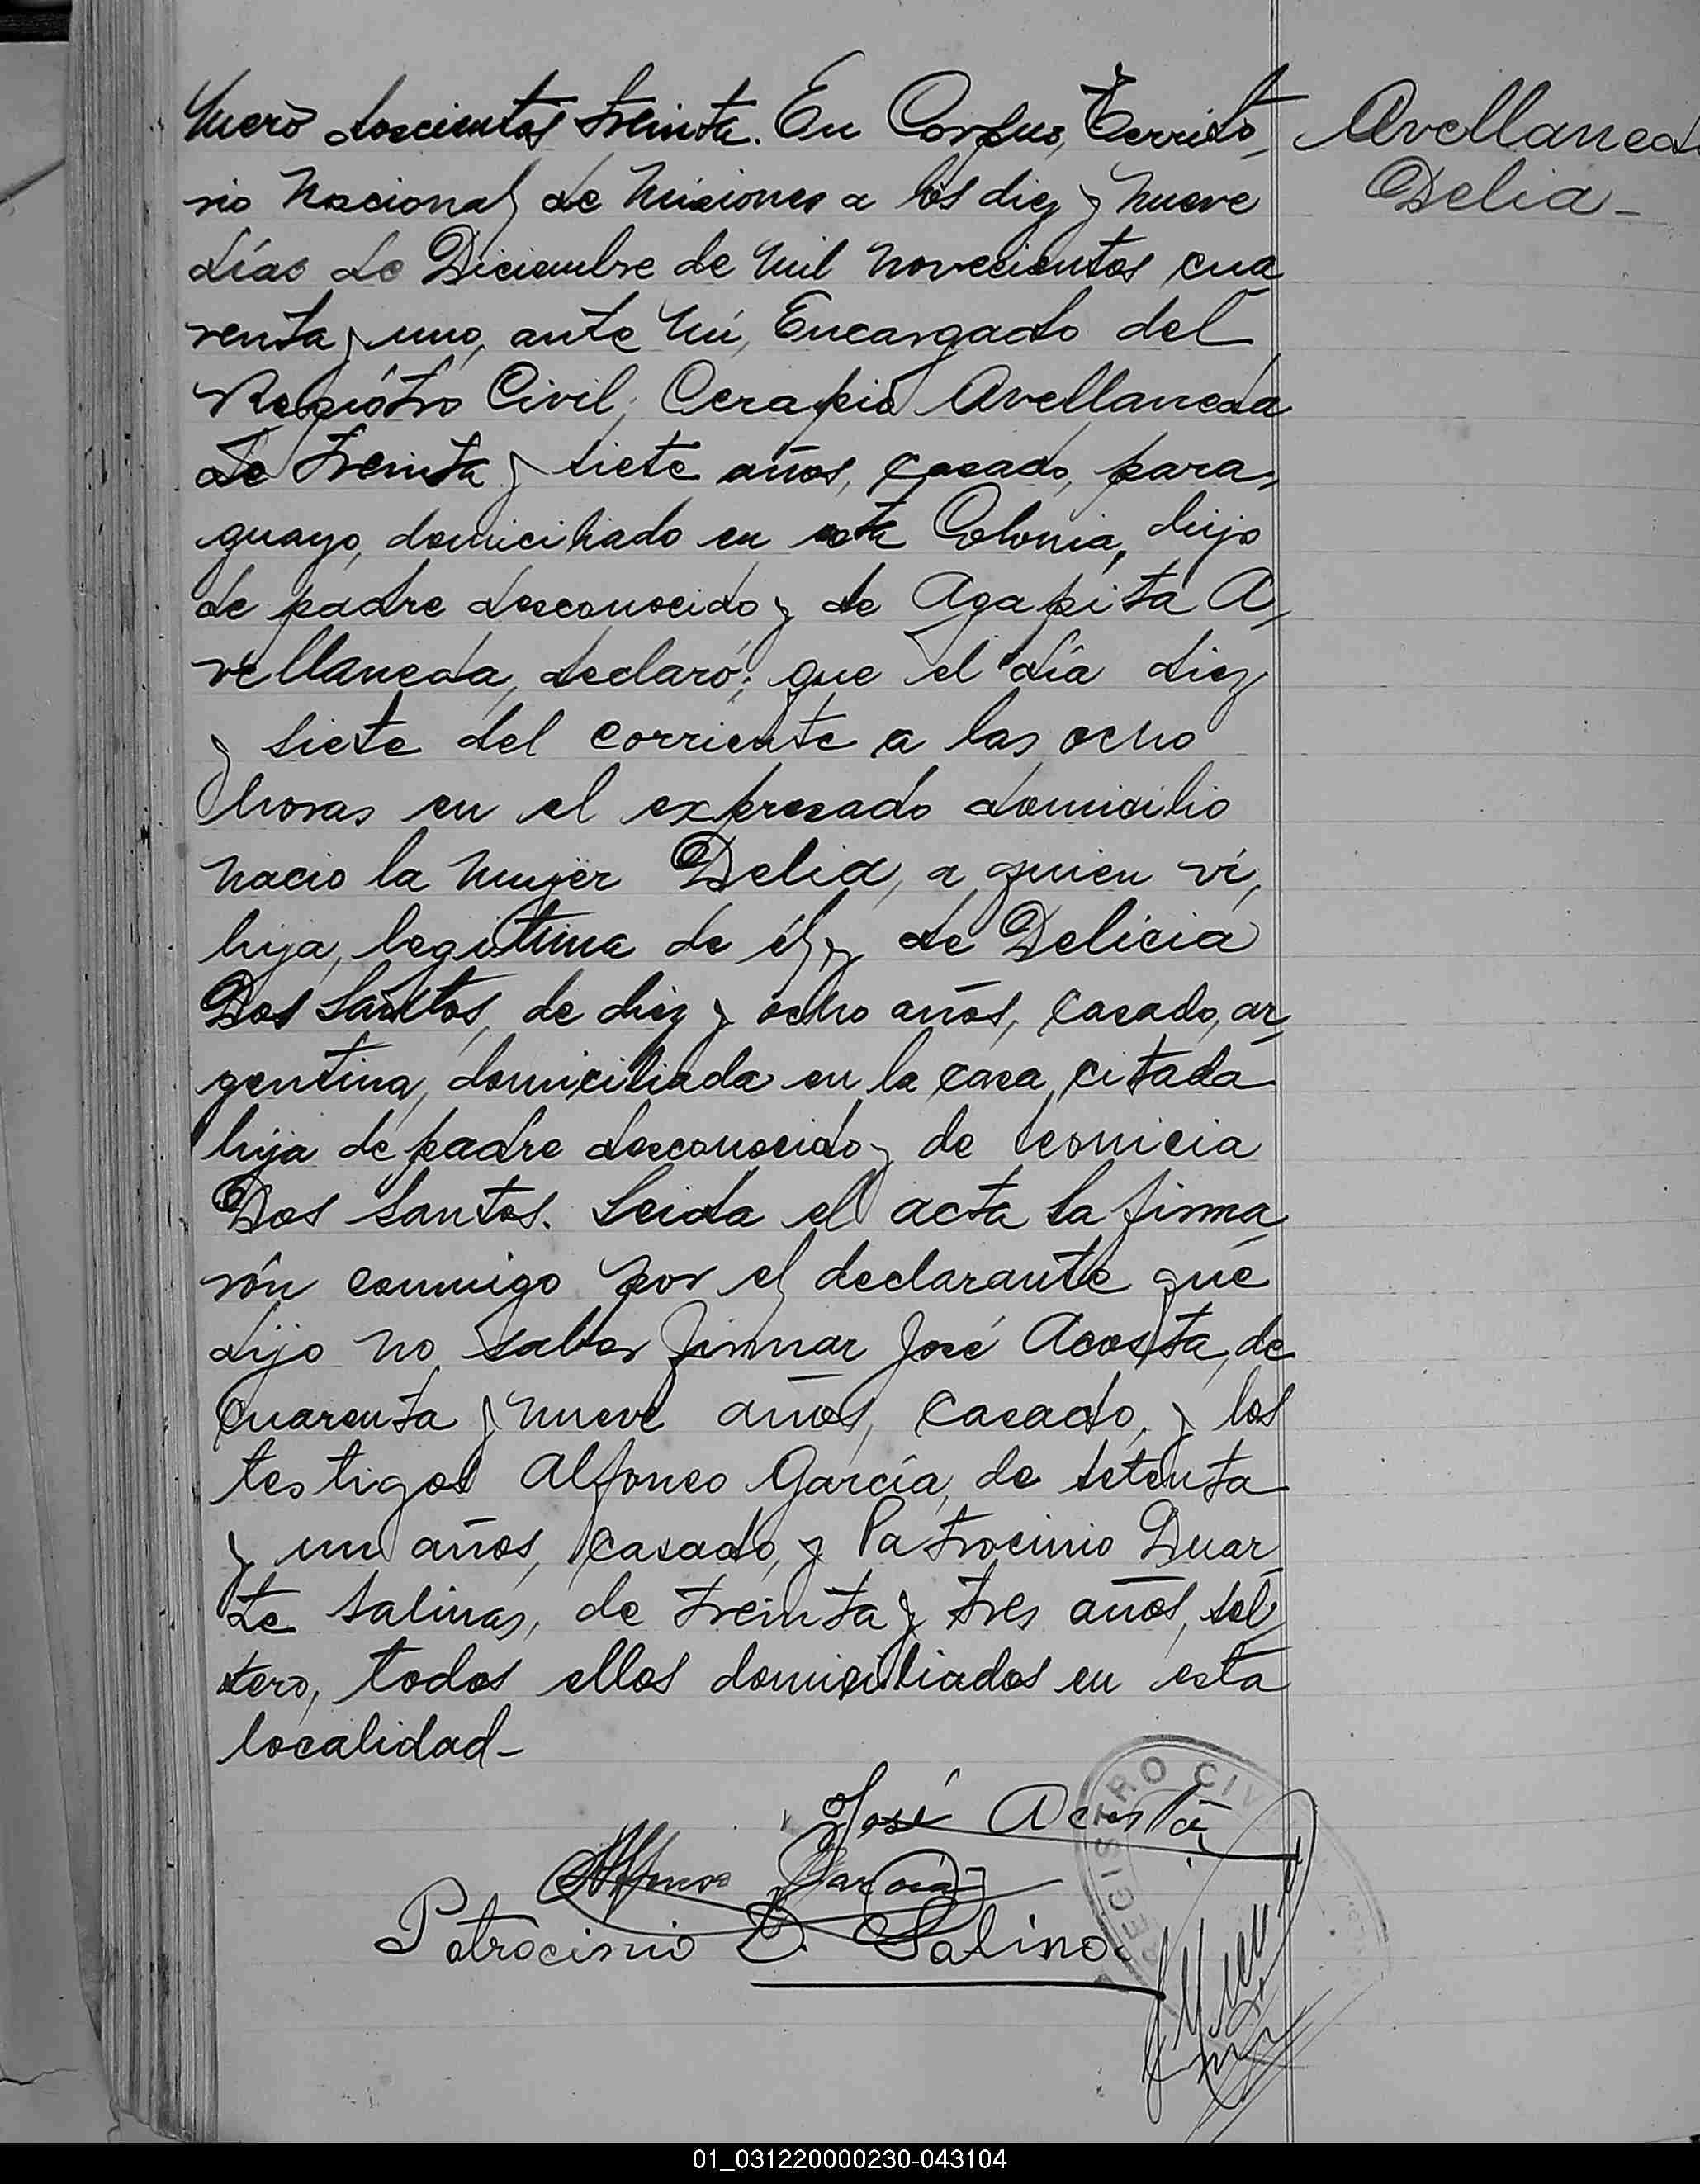 Número doscientos treinta. En Corpus, Territo
rio Nacional de Misiones a los diez y nueve
días de Diciembre de mil novecientos cua
renta y uno, ante mí, Encargado del
Registro Civil; Cerapio Avellaneda
de treinta y siete años, casado, para
guayo, domiciliado en esta Colonia, hijo
de padre desconocido y de Agapita A
vellaneda, declaró; que el día diez
y siete del corriente a las ocho
horas en el expresado domicilio
nacio la mujer Delia, a quien ví,
hija, legítima de él y de Delicia
Dos Santos, de diez y ocho años, casado, ar
gentina, domiciliada en la casa citada
hija de padre desconocido y de Leonicia
Dos Santos. Leida el acta la firma
rón conmigo por el declarante que
dijo no saber firmar José Acosta, de
cuarenta y nueve años, casado, y los
testigos Alfonso García, de setenta
y un años, casado, y Patrocinio Duar
te Salinas, de treinta y tres años, sol
tero, todos ellos domiciliados en esta
localidad-
Avellaneda
Delia-
José Acosta
Alfonso García
Patrocinio D. Salinas
REGISTRO CIV
01_031220000230-043104